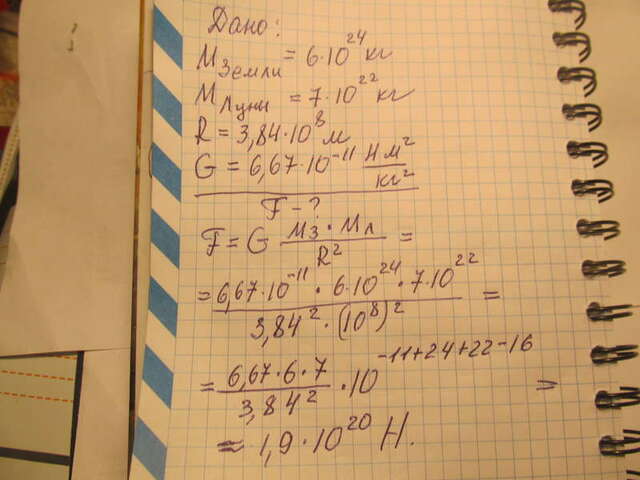 Дано:
M Земли = 6·10²⁴ кг
M Луны = 7·10²² кг
R = 3,84·10⁸ м
G = 6,67·10⁻¹¹ Н м²/кг²
F - ?
F = G Mз·Mл/R² =
= 6,67·10⁻¹¹ · 6·10²⁴ · 7·10²²/3,84² · (10⁸)² =
= 6,67·6·7/3,84² · 10⁻¹¹⁺²⁴⁺²²⁻¹⁶ =
= 1,9·10²⁰ Н.